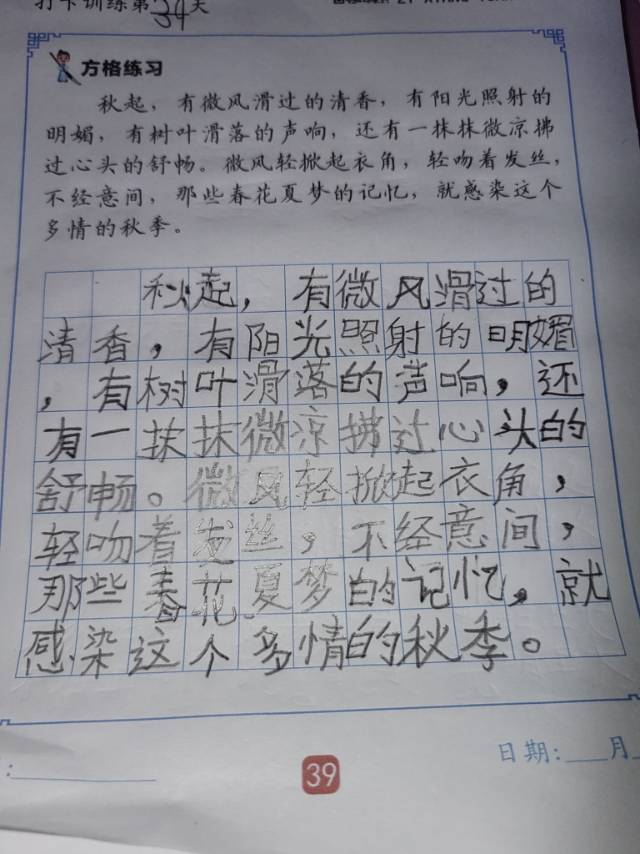 打卡训练第34天
方格练习
秋起，有微风滑过的清香，有阳光照射的
明媚，有树叶滑落的声响，还有一抹抹微凉拂
过心头的舒畅。微风轻掀起衣角，轻吻着发丝，
不经意间，那些春花夏梦的记忆，就感染这个
多情的秋季。
秋起，有微风滑过的
清香，有阳光照射的明媚
，有树叶滑落的声响，还
有一抹抹微凉拂过心头的
舒畅。微风轻掀起衣角，
轻吻着发丝，不经意间，
那些春花夏梦的记忆，就
感染这个多情的秋季。
日期:___月
39